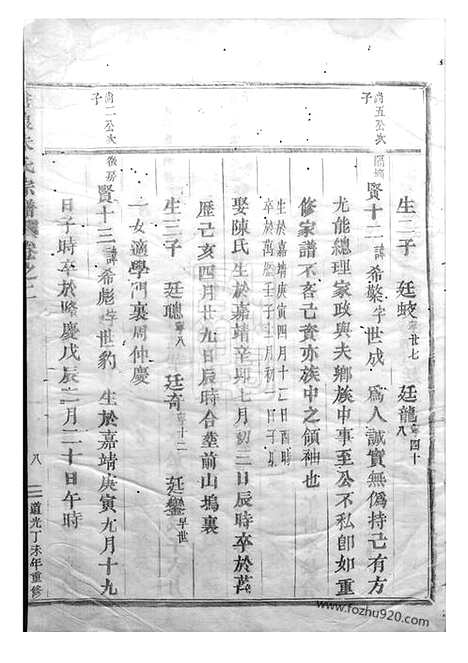 尚五公次子
生二子 廷蛟寧廿七 廷龍寧四十八
賢十二諱希槃字世成 為人誠實無偽持己有方
尤能總理家政與夫鄉族中事至公不私卽如重
修家譜不吝己資亦族中之領袖也
生於嘉靖庚寅四月十二日酉時
卒於萬曆壬子十一月初一日子時
娶陳氏生於嘉靖辛卯七月初二日辰時卒於萬
歷己亥四月廿九日辰時合塟前山塢裏
生三子 廷聰寧八 廷奇寧十二 廷鑾早世
一女適學門裏周仲慶
尚二公次子
賢十三諱希彪字世豹 生於嘉靖庚寅九月十九
日子時卒於隆慶戊辰二月二十日午時
氏宗譜 卷之二
八
道光丁未年重修
www.fozhu920.com